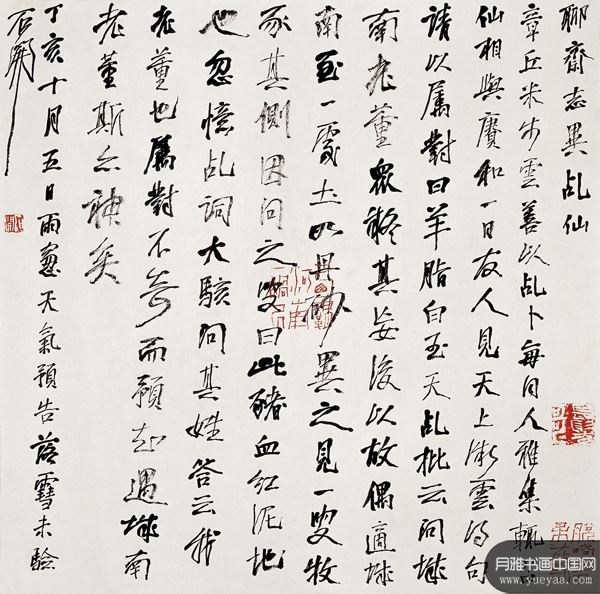 聊齋志異乩仙
章丘米步雲善以乩卜每同人雅集輒召
仙相與賡和一日友人見天上微雲得句
請以屬對曰羊脂白玉天乩批云問城
南老董眾疑其妄後以故偶適城
南至一處土如丹砂異之見一叟牧
豕其側因問之叟曰此豬血紅泥地
也忽憶乩詞大駭問其姓答云我
老董也屬對不奇而預知遇城南
老董斯亦神矣
丁亥十月五日雨窻天氣預告落雪未驗
石開
月雅书画中国网
www.yueyaa.com